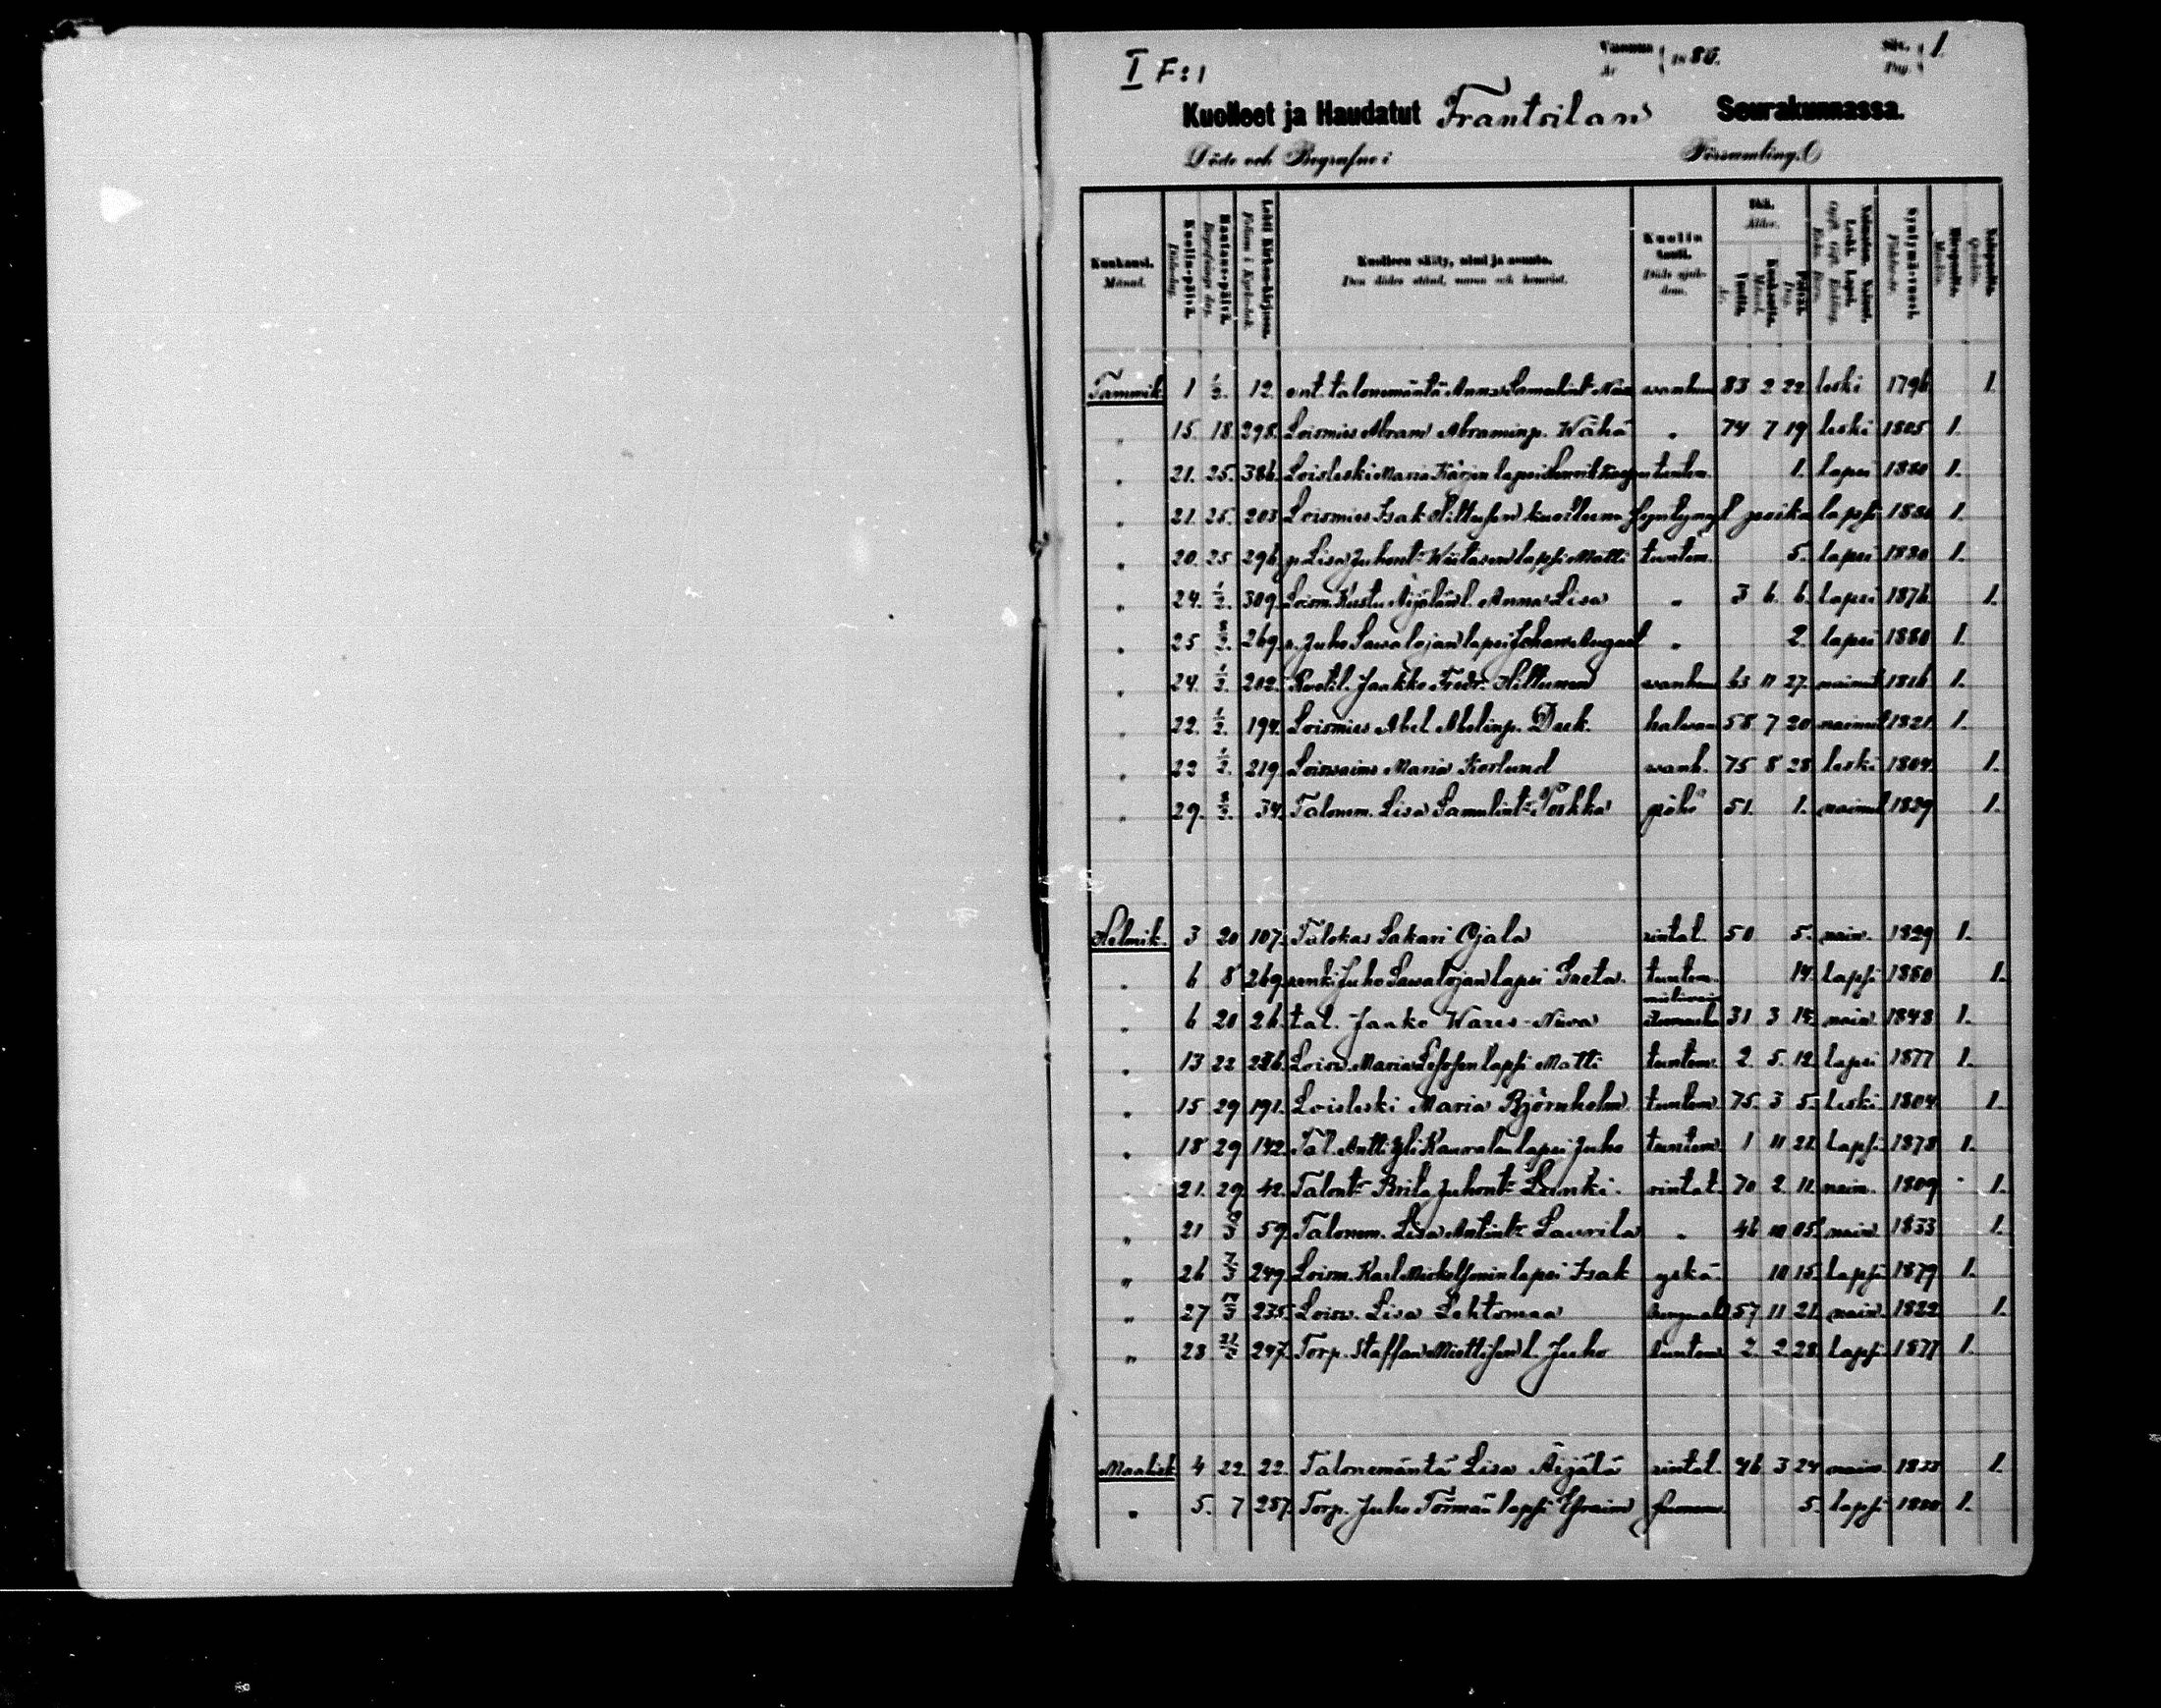 I F:1
Vuonna 1880. Siv. 1.
År Pag.
Kuolleet ja Haudatut Frantsilan Seurakunnassa.
Döde och Begrafne i Församling.
Kuukausi. Månad.
Kuolin-päivä. Dödsdag.
Hautaus-päivä. Begrafnings dag.
Lehti Kirkon-kirjassa. Folium i Kyrkobok.
Kuolleen sääty, nimi ja asunto. Den dödes stånd, namn och hemvist.
Kuolin tauti. Döds sjukdom.
Ikä. Ålder.
Vuotta. År.
Kuukautta. Månad.
Päivää. Dag.
Syntymävuosi. Födelseår.
Miespuolia. Mankön.
Vaimopuolia. Qvinkön.
Tammik. 1 1/2. 12. ent. talonemäntä Anna Samulint. wanhuus 83 2 22 leski 1796 1.
" 15. 18. 298. Loismies Abram Abraminp. Wähä " 74 7 19 leski 1805 1.
" 21. 25. 386. Loisleski Maria Kärjen lapsi tuntem. 1. lapsi 1880 1.
" 21. 25. 203 Loismies Isak Hiltusen kuolleena syntynyt poika lapsi 1880 1.
" 20. 25 296. p. Lisa Juhont. Wiitasen lapsi Matti tuntem. 5. lapsi 1880 1.
" 24. 1/2. 309. Loism. Kustu Äijälän l. Anna Lisa " 3 6. 6. lapsi 1876 1.
" 25 8/2. 269. r. Juho Sawalojan lapsi Johan August " 2. lapsi 1880 1.
" 24. 1/2. 202. Ruotil. Jaakko Fredr. Hiltunen wanhuus 63 11 27. nainut 1816 1.
" 22. 1/2. 194. Loismies Abel Abelinp. Deck. halwaus 58 7 20 nainut 1821 1.
" 22 1/2. 219. Loiswaimo Maria Korlund wanh. 75 8 28 leski 1804 1.
" 29. 8/2. 34. Talonem. Lisa Samulint. pöhö 51. 1. nainut 1829 1.
Helmik. 3 20 107. Talokas Sakari Ojala rintat. 50 5. nain. 1829 1.
" 6 8 269. renki Juho Sawalojan lapsi Greta. tuntem. 14. lapsi 1880 1.
" 6 20 26. tal. Jaako Wares-Niwa 31 3 14. nain. 1848 1.
" 13 22 286. Loisw. Maria lapsi Matti tuntem. 2. 5. 12 lapsi 1877 1.
" 15 29 191. Loisleski Maria Björnholm tuntem. 75. 3 5. leski 1804 1.
" 18 29 142. Tal. Antti Yli Kauralan lapsi Juho tuntem. 1 11 21. lapsi 1878 1.
" 21. 29. 42. Talont. Brita Juhont. Leinki. rintat. 70 2. 11. nain. 1809 1.
" 21 59. Talonem. Lisa Antint. Laurila " 46 10 05 nain. 1833 1.
" 26 7/3 249. Loism. Karl Mickelssonin lapsi Isak yskä. 10 15. lapsi 1879 1.
" 27 14/3 235. Loisw. Lisa Lehtomaa 57 11 21. nain. 1822 1.
" 28 247. Torp. Staffan Miettisen l. Juho tuntem. 2. 2. 28 lapsi 1877 1.
Maalisk. 4 22. 22. Talonemäntä Lisa Äijälä rintat. 46 3 24 nain. 1833 1.
" 5. 7 257. Torp. Juho Törmän lapsi Efraim 5. lapsi 1880 1.